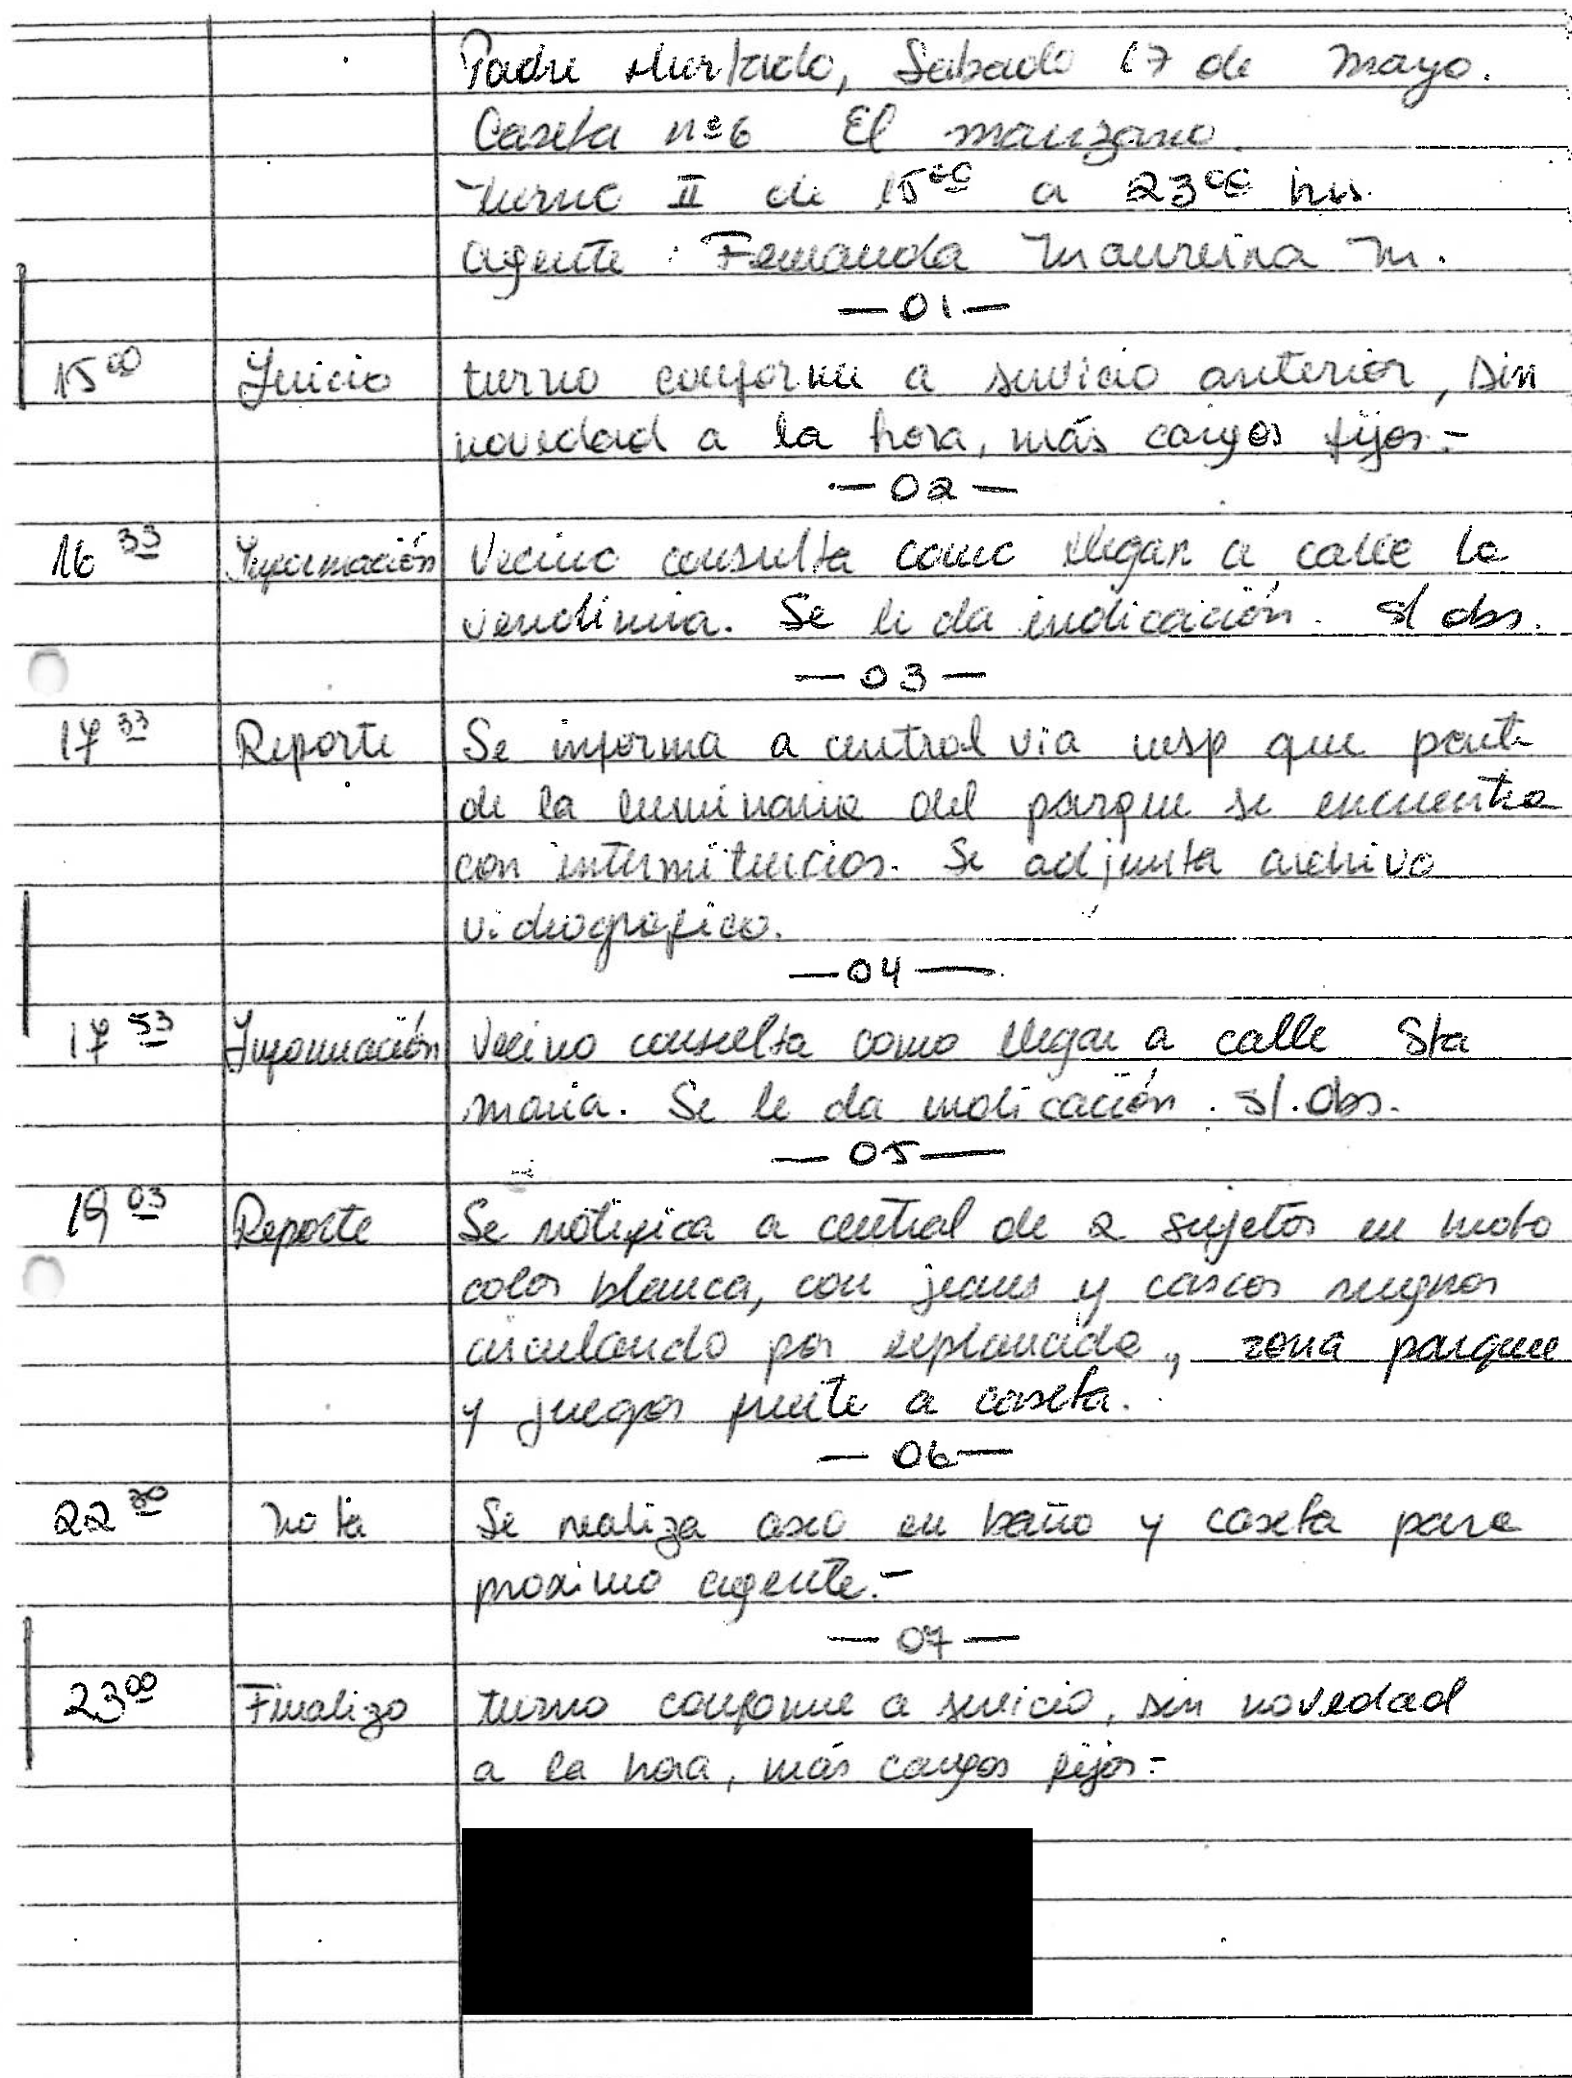 Padre Hurtado, Sabado 17 de Mayo.
Caseta n°6 El manzano.
turno II de 15:00 a 23:00 hrs.
agente : Fernanda Maureira M.
— 01 —
15 00 Inicio turno conforme a servicio anterior, sin
novedad a la hora, más cargos fijos.-
— 02 —
16 33 Información Vecino consulta como llegar a calle la
vendimia. Se le da indicación. s/ obs.
— 03 —
17 33 Reporte Se informa a central via wsp que parte
de la luminaria del parque se encuentra
con intermitencias. Se adjunta archivo
videografico.
— 04 —
17 53 Información Vecino consulta como llegar a calle Sta
maria. Se le da indicación. s/. Obs.
— 05 —
19 03 Reporte Se notifica a central de 2 sujetos en moto
color blanca, con jeans y cascos negros
circulando por explanada, zona parque
y juegos frente a caseta.
— 06 —
22 30 Nota Se realiza aseo en baño y caseta para
proximo agente.-
— 07 —
23 00 Finalizo turno conforme a servicio, sin novedad
a la hora, más cargos fijos.-